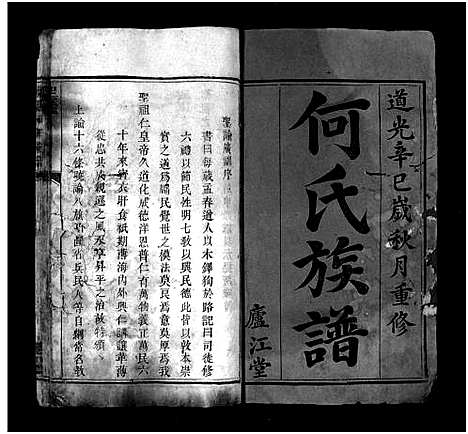 道光辛巳歲秋月重修
何氏族譜
廬江堂
聖諭廣訓序
書曰每歲孟春遒人以木鐸徇於路記曰司徒修
六禮以節民性明七敎以興民德此皆以敦本崇
實之道爲牖民覺世之模法莫良焉意莫厚焉我
聖祖仁皇帝久道化成德洋恩普仁育萬物義正萬民六
十年來宵衣旰食祇期薄海內外興仁講讓革薄
從忠共成親遜之風永享昇平之治故特頒
上諭十六條曉諭八旗及直省兵民人等自綱常名敎